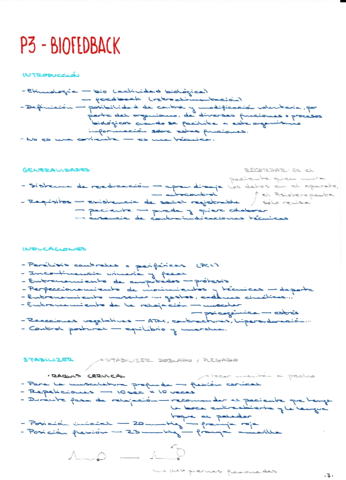 P3 - BIOFEEDBACK
INTRODUCCIÓN
- Etimología — bio (actividad biológica)
→ feedback (retroalimentación)
- Definición — posibilidad de control y modificación voluntaria, por
parte del organismo, de diversas funciones o procesos
biológicos cuando se facilita a este organismo
información sobre estas funciones.
- No es una corriente — es una técnica.
GENERALIDADES
RECORDAR: es el
paciente quien mira
- Sistema de reeducación — aprendizaje los datos en el aparato,
→ autocontrol el fisioterapeuta
- Requisitos — existencia de señal registrable solo revisa
→ paciente — pueda y quiera colaborar
→ ausencia de contraindicaciones técnicas
INDICACIONES
- Parálisis centrales o periféricas (PCI)
- Incontinencia urinaria y fecal
- Entrenamiento de amputados — prótesis
- Perfeccionamiento de movimientos y técnicas — deporte
- Entrenamiento muscular — gestos, cadenas cinéticas...
- Entrenamiento de la relajación — muscular
→ psicogénica — estrés
- Reacciones vegetativas — ATM, contracturas, hipersudoración...
- Control postural — equilibrio y marcha.
STABILIZER → STABILIZER DOBLADO Y PLEGADO
· RAQUIS CERVICAL
- Para la musculatura profunda — flexión cervical
- Repeticiones — 10 seg x 10 veces
- Durante fase de relajación — recomendar al paciente que tenga
la boca entreabierta y la lengua
toque el paladar
- Posición inicial — 20 mmHg — franja roja
- Posición flexión — 23 mmHg — franja amarilla
piernas flexionadas